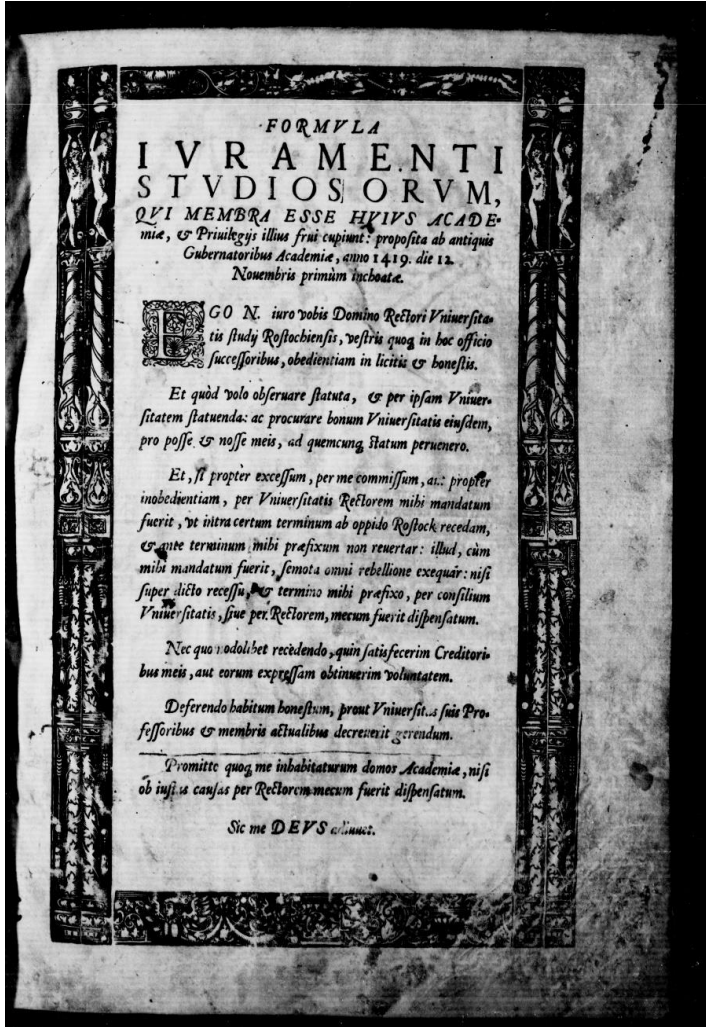 FORMVLA
IVRAMENTI
STVDIOSORVM,
QVI MEMBRA ESSE HVIVS ACADE-
miæ, & Priuilegijs illius frui cupiunt: proposita ab antiquis
Gubernatoribus Academiæ, anno 1419. die 12
Nouembris primùm inchoatæ.
EGO N. iuro vobis Domino Rectori Vniuersita-
tis studij Rostochiensis, vestris quoq; in hoc officio
successoribus, obedientiam in licitis & honestis.
Et quòd volo obseruare statuta, & per ipsam Vniuer-
sitatem statuenda: ac procurare bonum Vniuersitatis eiusdem,
pro posse & nosse meis, ad quemcunq; statum peruenero.
Et, si propter excessum, per me commissum, aut propter
inobedientiam, per Vniuersitatis Rectorem mihi mandatum
fuerit, vt intra certum terminum ab oppido Rostock recedam,
& ante terminum mihi præfixum non reuertar: illud, cùm
mihi mandatum fuerit, semota omni rebellione exequar: nisi
super dicto recessu, & termino mihi præfixo, per consilium
Vniuersitatis, siue per Rectorem, mecum fuerit dispensatum.
Nec quomodolibet recedendo, quin satisfecerim Creditori-
bus meis, aut eorum expressam obtinuerim voluntatem.
Deferendo habitum honestum, prout Vniuersitas suis Pro-
fessoribus & membris actualibus decreuerit gerendum.
Promitto quoq; me inhabitaturum domos Academiæ, nisi
ob iustas causas per Rectorem mecum fuerit dispensatum.
Sic me DEVS adiuuet.